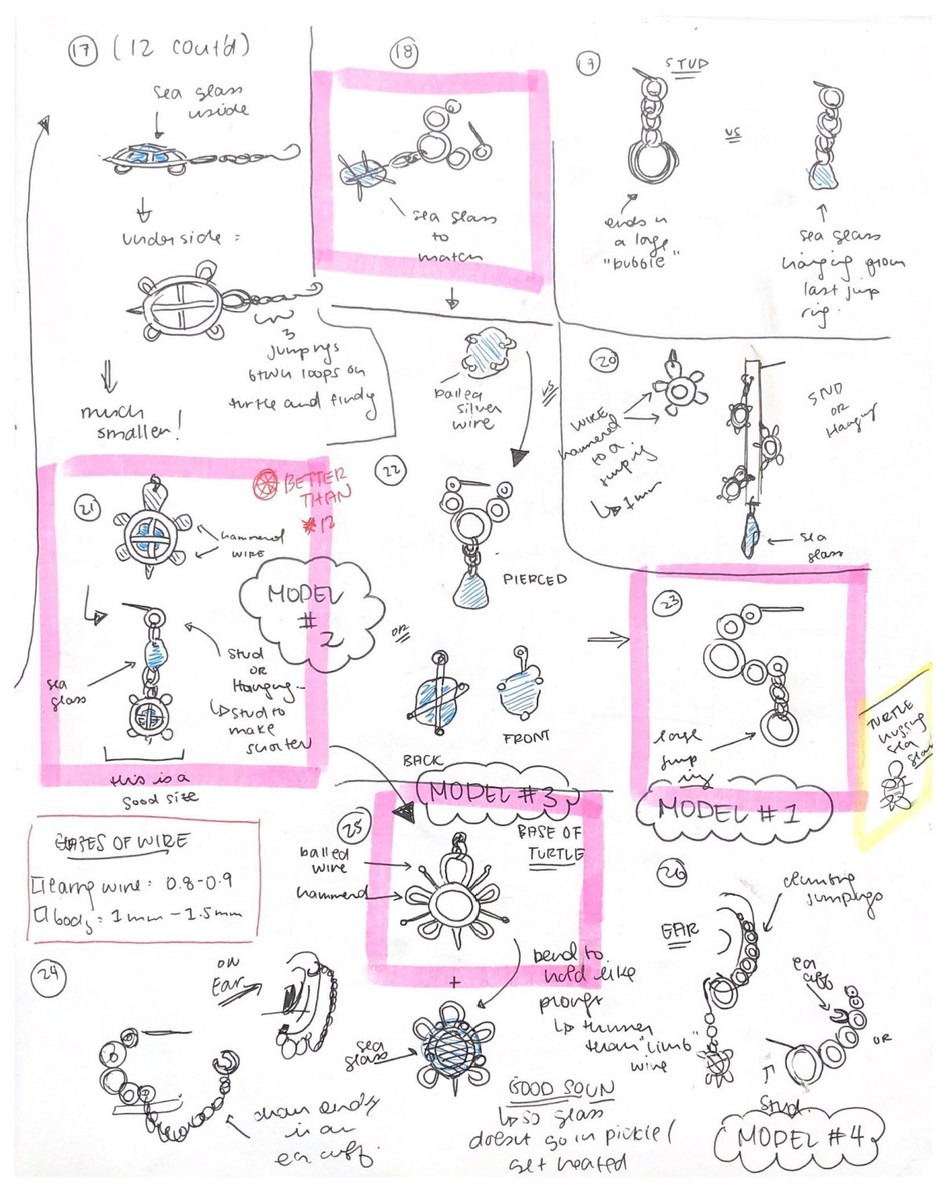 17 (12 cout'd)
sea glass
inside
underside =
3
jumprings
btwn loops on
turtle and findg
much
smaller!
18
sea glass
to
match
balled
silver
wire
vs
19
STUD
vs
ends in
a large
"bubble"
sea glass
hanging from
last jump
ring.
20
WIRE
hammered
to a
jumpring
↳ 1mm
STUD
OR
Hanging
sea
glass
21
BETTER
THAN
#12
hammered
WIRE
MODEL
#
2
sea
glass
stud
OR
Hanging...
↳ stud to
make
shorter
this is a
good size
22
PIERCED
OR
BACK
FRONT
MODEL #3
23
large
jump
ring
MODEL #1
TURTLE
hugging
sea
glass
GAGES OF WIRE
earring wire: 0.8-0.9
body: 1mm-1.5mm
24
ON
EAR
chain ends
in an
ear cuff.
25
BASE OF
TURTLE
balled
wire
hammered
+
bend to
hold like
prongs
↳ thinner
than "limb"
wire
sea
glass
GOOD SOLN
↳ so glass
doesn't go in pickle /
get heated
26
EAR
climbing
jumprings
ear
cuff
OR
Stud.
MODEL #4